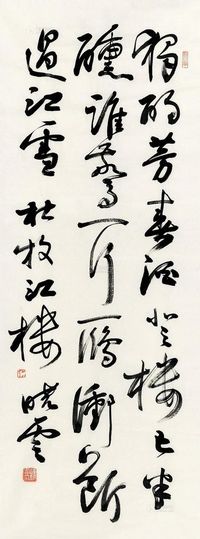 獨酌芳春酒登樓已半
醺誰驚一行鴈衝斷
過江雲 杜牧江樓 曉雲